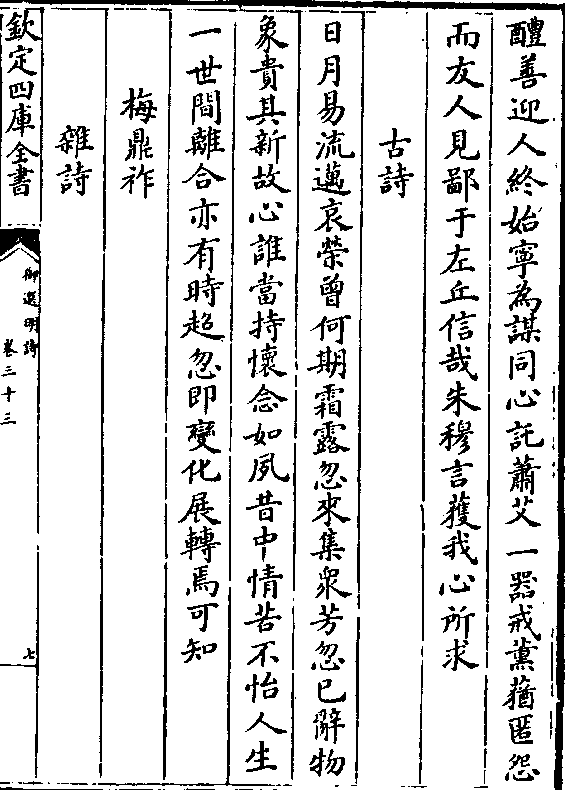 醴善迎人終始寧為謀同心託蕭艾一器戒薰蕕匿怨
而友人見鄙于左丘信哉朱穆言獲我心所求
古詩
日月易流邁哀榮曾何期霜露忽來集衆芳忽已辭物
象貴其新故心誰當持懷念如夙昔中情苦不怡人生
一世間離合亦有時超忽即變化展轉焉可知
梅鼎祚
雜詩
欽定四庫全書
御選明詩
卷三十三
七